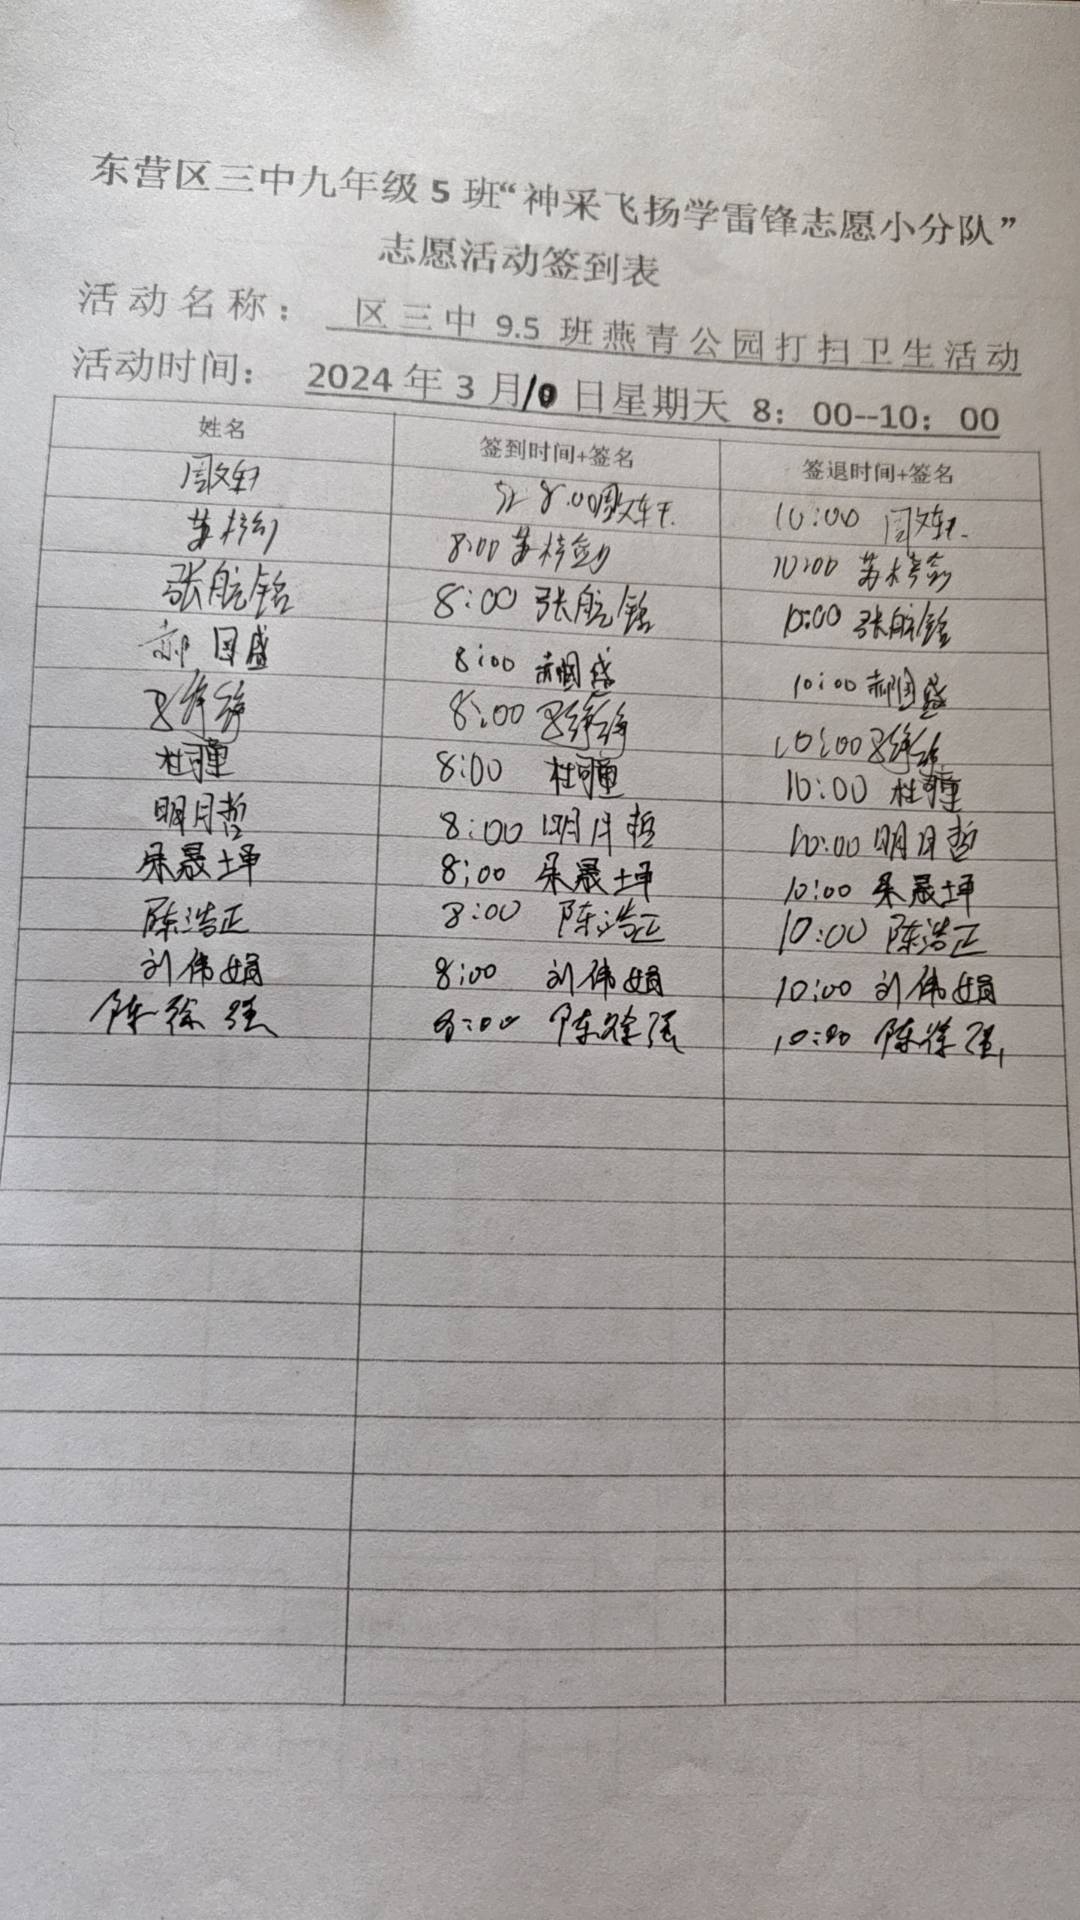 东营区三中九年级 5 班“神采飞扬学雷锋志愿小分队”
志愿活动签到表
活动名称： 区三中 9.5 班燕青公园打扫卫生活动
活动时间： 2024 年 3 月10 日星期天 8：00--10：00
姓名 签到时间+签名 签退时间+签名
周文轩 8:00周文轩 10:00 周文轩
苏梓剑 8:00 苏梓剑 10:00 苏梓剑
张航铭 8:00 张航铭 10:00 张航铭
郝国盛 8:00 郝国盛 10:00 郝国盛
8:00 10:00
杜瞳 8:00 杜瞳 10:00 杜瞳
明月哲 8:00 明月哲 10:00 明月哲
晟坤 8:00 晟坤 10:00 晟坤
陈浩正 8:00 陈浩正 10:00 陈浩正
刘伟娟 8:00 刘伟娟 10:00 刘伟娟
陈徐强 8:00 陈徐强 10:00 陈徐强